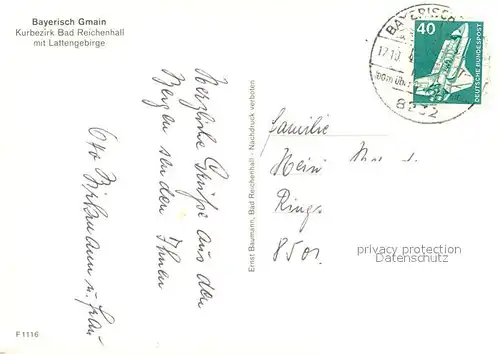 Bayerisch Gmain
Kurbezirk Bad Reichenhall
mit Lattengebirge
Herzliche Grüße aus den
Bergen senden Ihnen
Otto u. Frau
F 1116
Ernst Baumann, Bad Reichenhall - Nachdruck verboten
BAYERISCH
8232
40
DEUTSCHE BUNDESPOST
Familie
Hein
Rings
850
privacy protection
Datenschutz